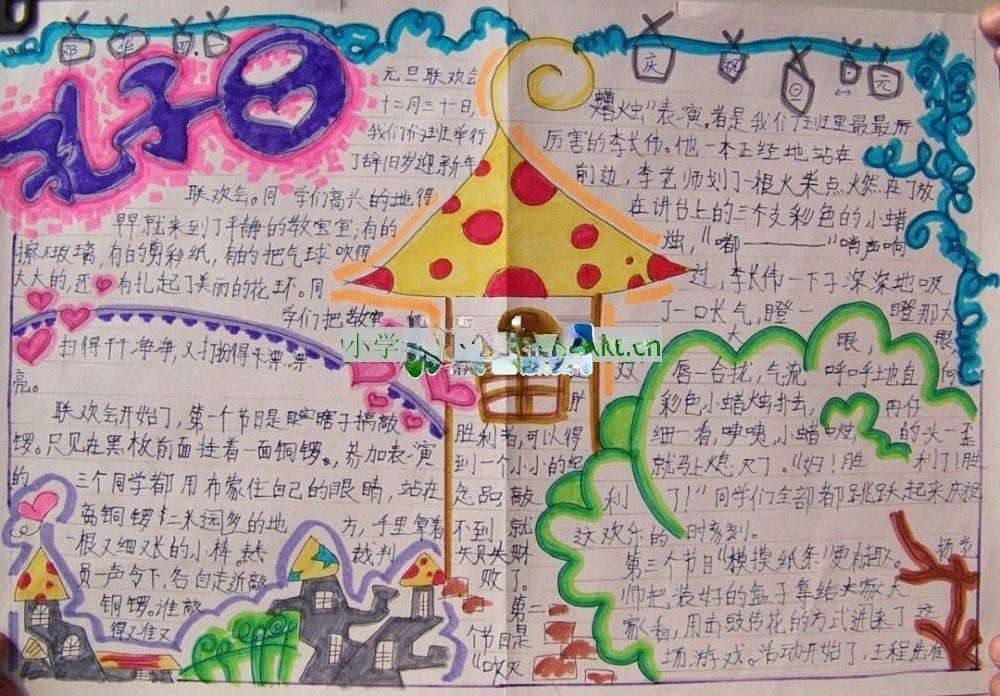 邓华初一
孔子日
元旦联欢会
十二月三十一日,
我们班举行
了辞旧岁迎新年
联欢会。同学们高兴的地得
早早就来到了平静的教室里;有的
擦玻璃,有的剪彩纸,有的把气球吹得
大大的,还有扎起了美丽的花环。同
学们把教室
扫得干干净净,又打扮得漂漂
亮。
联欢会开始了,第一个节目是瞎子搞敲
锣。只见在黑板前面挂着一面铜锣。参加表演
的三个同学都用布蒙住自己的眼睛,站在
离铜锣二米远的地方,手里拿着
一根又细又长的小棒。裁判
员一声令下,各自走近敲
铜锣。谁敲
得又准又
胜利者,可以得
到一个小小的纪
念品,敲
不到就
失败
了。
第二
个节目是
"吹灭
庆祝日元
蜡烛"表演。首先是我们班里最最厉
厉害的李长伟。他一本正经地站在
前边,李老师划了一根火柴点燃在了放
在讲台上的三个支彩色的小蜡
烛,"嘟———"哨声响
过,李长伟一下子深深地吸
了一口长气,瞪一瞪那大
大眼,眼
双唇一合拢,气流呼呼地直向
彩色小蜡烛扑去,再仔
细一看,咦咦,小蜡烛的头一歪
就马上熄灭了。"好!胜利了!胜
利了!"同学们全部都跳跃起来庆祝
这欢乐的时刻。
第三个节目"摸摸纸条"更有趣。杨老
师把装好的盒子拿给大家
家看,用击鼓传花的方式进来了这
场游戏。活动开始了,王程先准
小学
kt.cn